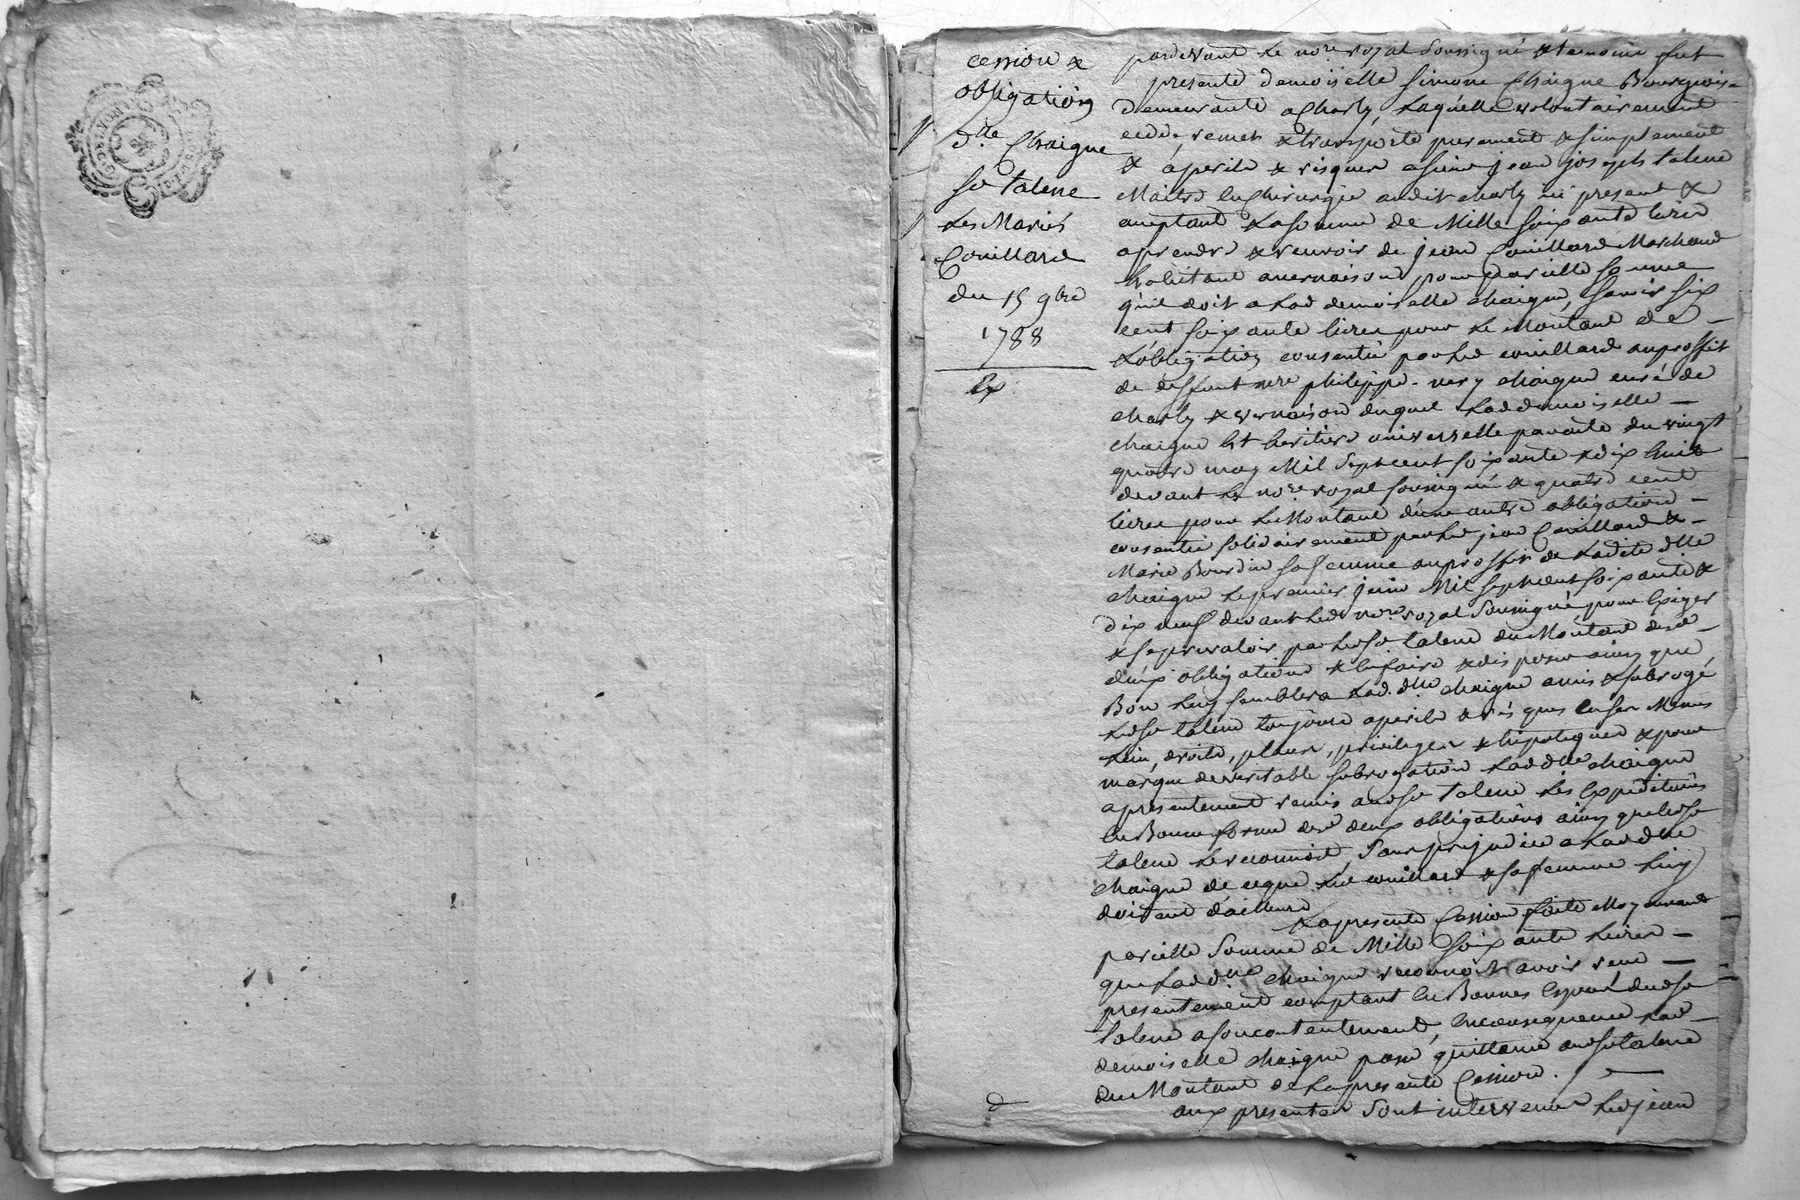 G. DE LYON
cession &
obligation
d.lle Chaigne
Sr talene
Les Mariés
Couillard
du 15 9bre
1788
pardevant Le no.re royal soussigné & temoins fut
presente demoiselle simone Chaigne Bourgeoise
demeurante a Charly, Laquelle volontairement
cede, remet & transporte purement & simplement
& a perils & risques a sieur jean joseph talene
Maitre en Chirurgie audit charly ici present &
acceptant La somme de Mille soixante livres
a prendre & recevoir de jean Couillard Marchand
habitant a vernaison pour pareille somme
qu'il doit a Lad demoiselle chaigne, savoir six
cent soixante livres pour Le Montant de
L'obligation consentie par Led couillard au proffit
de deffunt m.re philippe chaigne curé de
charly & vernaison duquel Lad demoiselle
chaigne est heritiere universelle par acte du vingt
quatre may Mil sept cent soixante & dix huit
devant Le no.re royal soussigné & quatre cent
livres pour Le Montant d'une autre obligation
consentie solidairement par Led jean Couillard &
Marie Bourdin sa femme au proffit de Ladite dlle
chaigne Le premier juin Mil sept cent soixante &
dix neuf devant Led no.re royal soussigné pour Exiger
& se prevaloir par Led sr talene du Montant desd
deux obligations & en faire & disposer ainsy que
Bon Luy semblera Lad. dlle chaigne a mis & subrogé
Led sr talene toujours a perils & risques en ses Mêmes
Lieu, droits, place, privileges & hipoteques & pour
marque de veritable subrogation Lad dlle chaigne
a presentement remis aud sr talene Les Expeditions
en Bonne forme desd deux obligations ainsy que Led sr
talene Le reconnoit, sans prejudice a Lad dlle
chaigne de ce que Led couillard & sa femme Luy
doivent d'ailleurs
La presente Cession faite Moyennant
pareille somme de Mille soixante Livres
que Lad dlle chaigne reconnoit avoir reçue
presentement comptant en Bonnes Especes dud sr
talene a son contentement, en consequence Lad
demoiselle chaigne passe quittance aud sr talene
du Montant de La presente Cession.
aux presentes sont intervenus Led jean